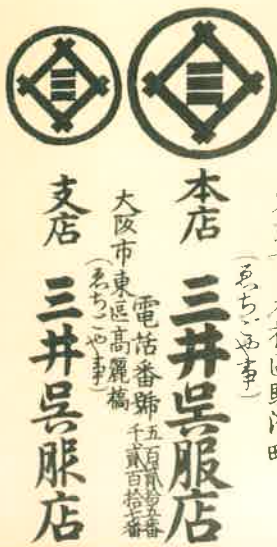 (ゑちごや事)
本店 三井呉服店
電話番號 五百貳拾五番
千貳百拾七番
大阪市東區高麗橋
(ゑちごや事)
支店 三井呉服店